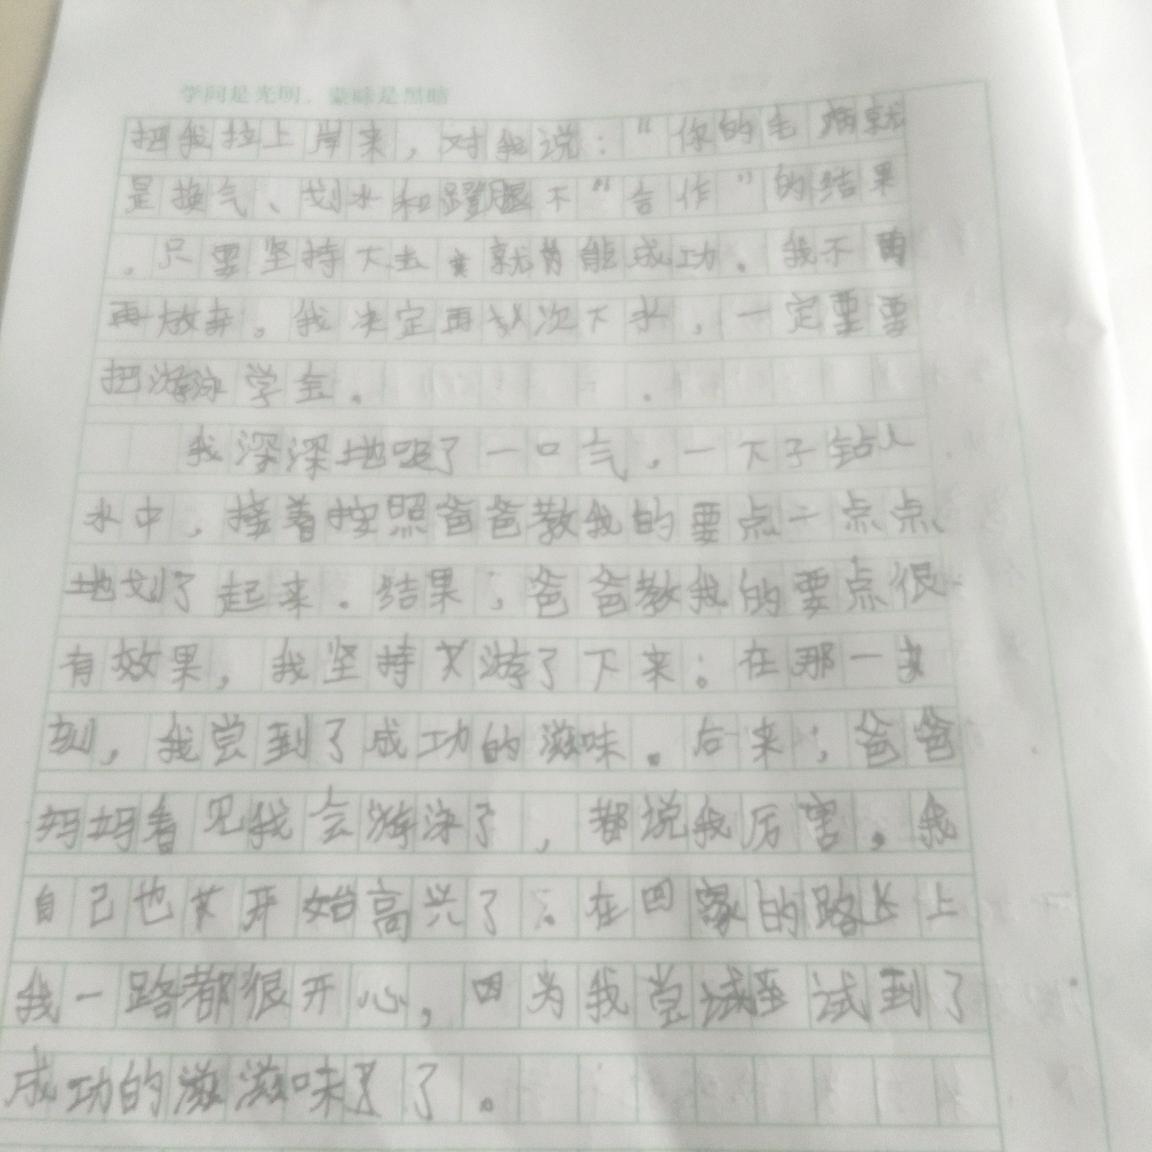 学问是光明，蒙昧是黑暗
把我拉上岸来，对我说：“你的毛病就
是换气、划水和蹬腿不“合作”的结果
。只要坚持下去就能成功。我不
再放弃。我决定再次下水，一定要
把游泳学会。
我深深地吸了一口气，一下子钻入
水中，接着按照爸爸教我的要点一点点
地划了起来。结果，爸爸教我的要点很
有效果，我坚持游了下来。在那一
刻，我尝到了成功的滋味。后来，爸爸
妈妈看见我会游泳了，都说我厉害。我
自己也开始高兴了。在回家的路上
我一路都很开心，因为我尝试到了
成功的滋味了。